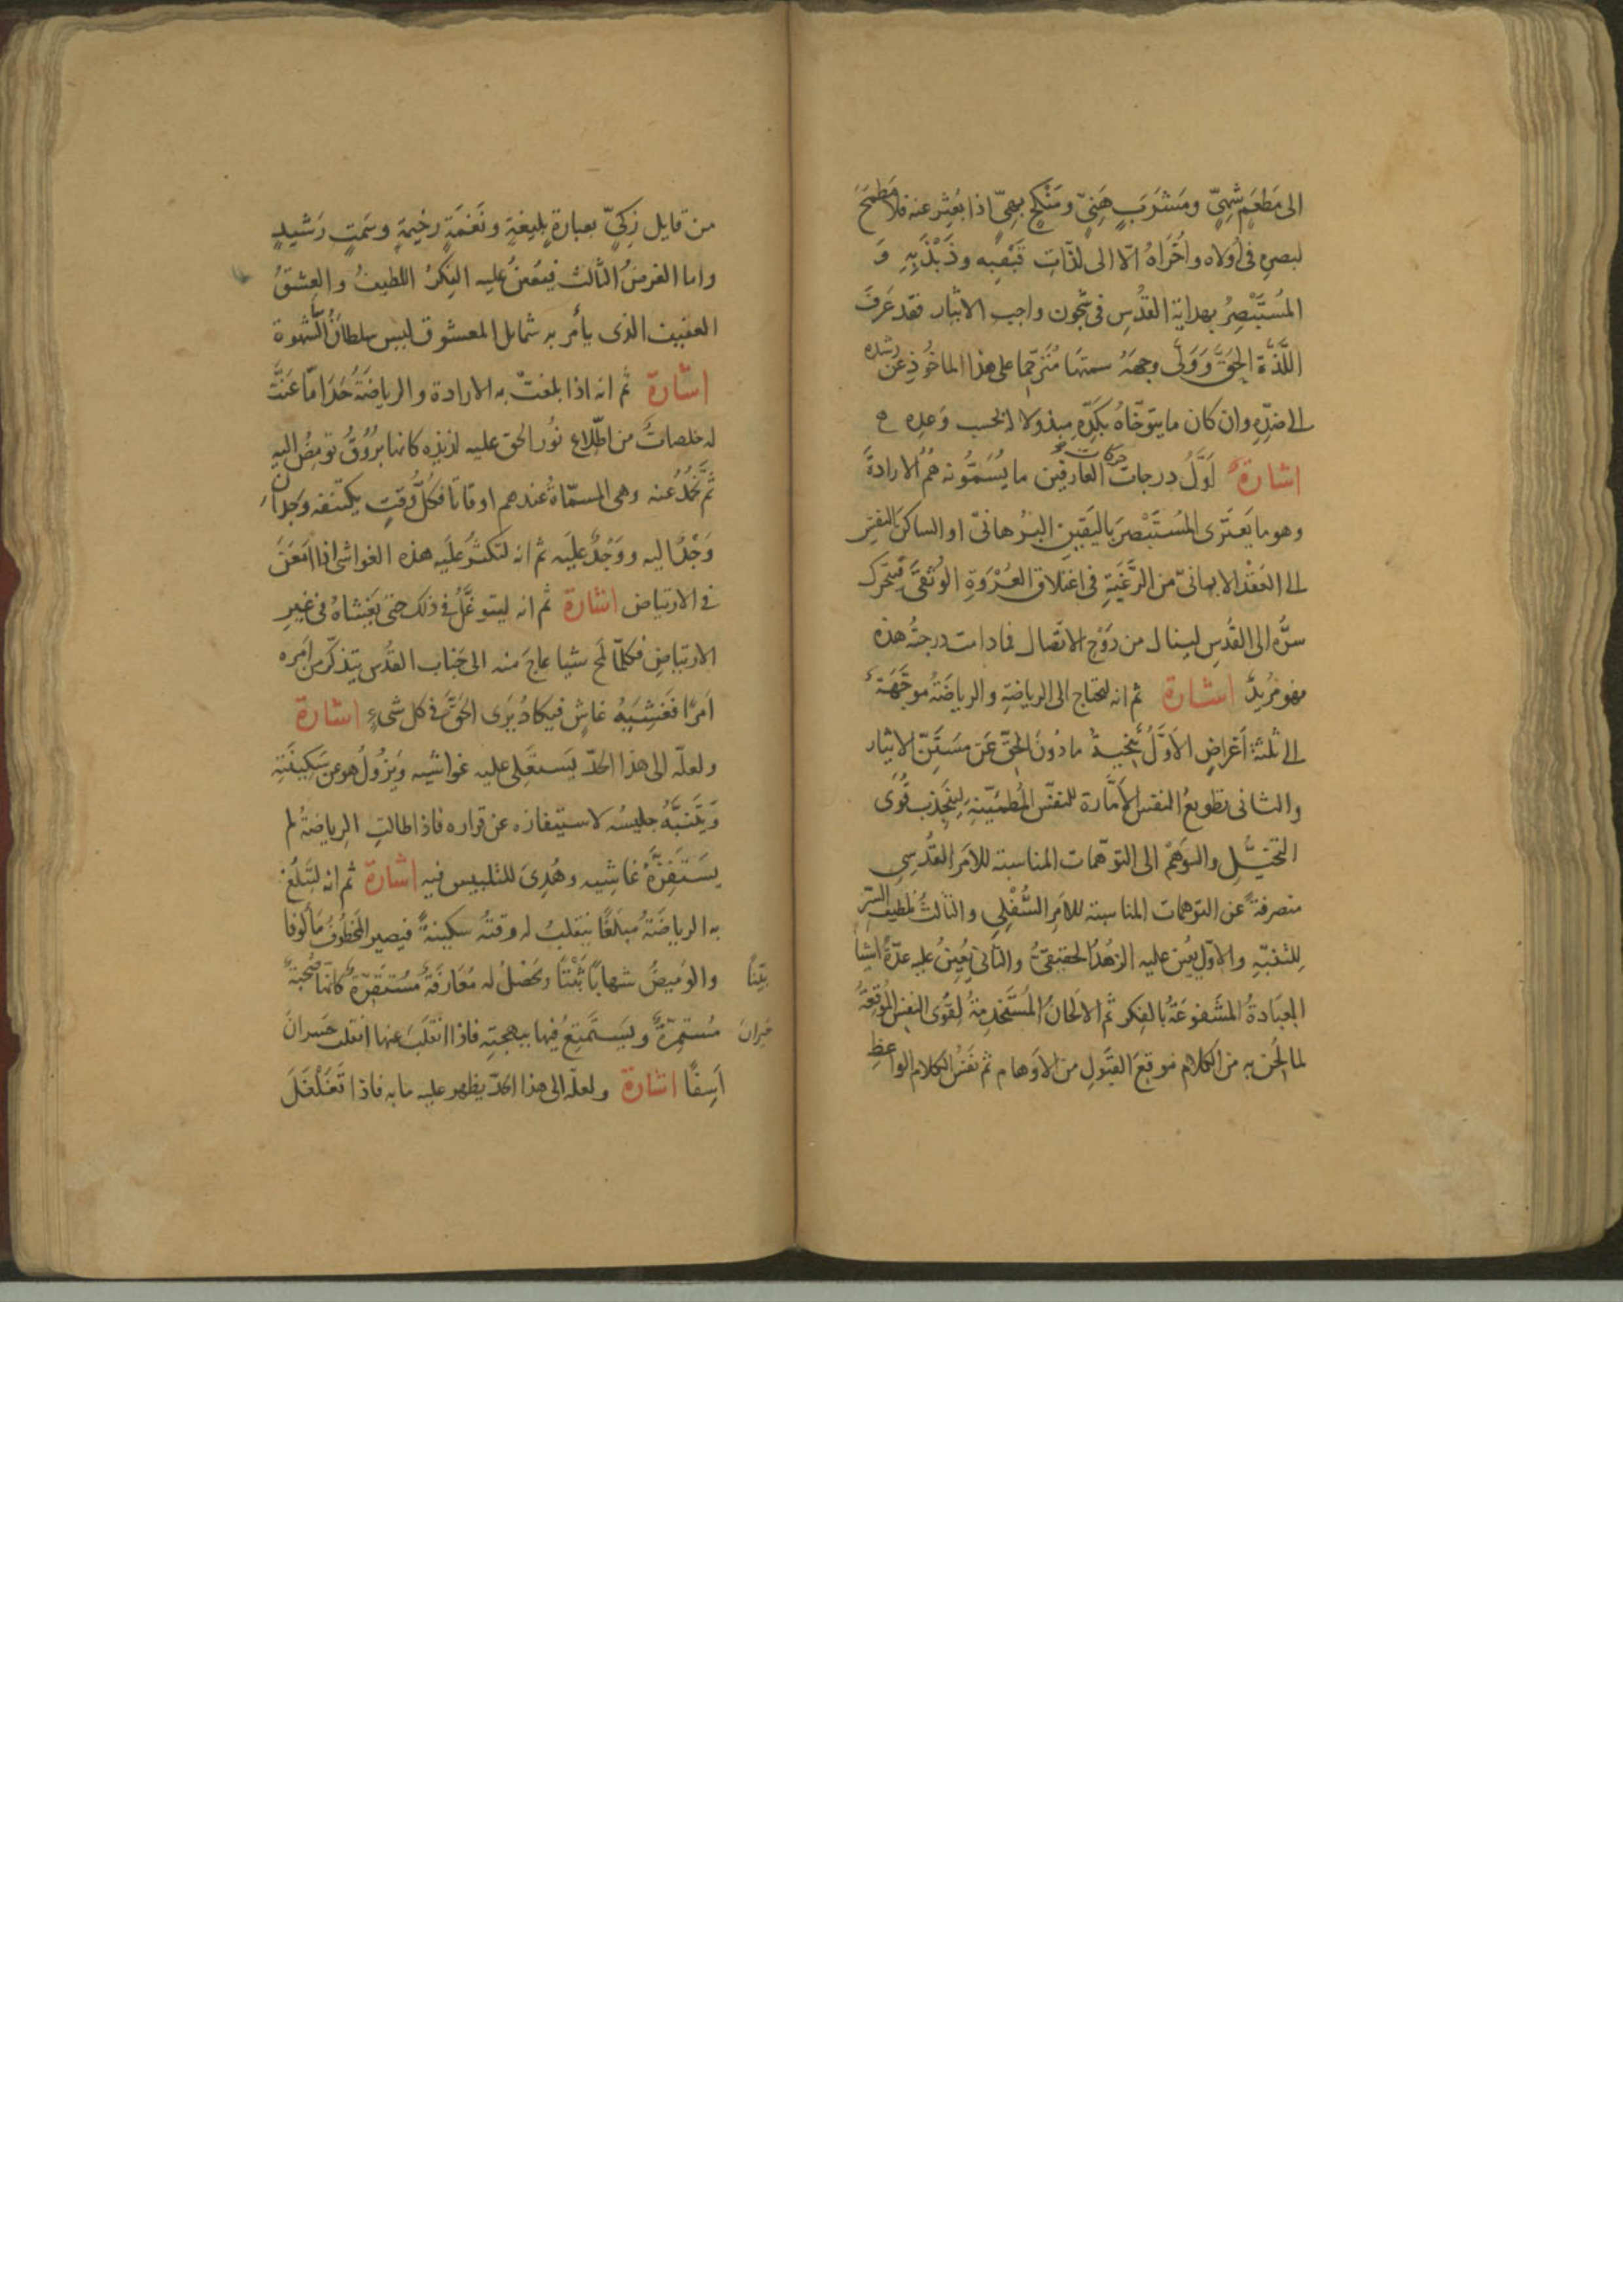 الى مَطعَمٍ شهِىٍّ ومَشرَبٍ هَنِىٍّ ومَنْكحٍ بهىٍّ اذا بُعثِر عنه فلا مَطمَحَ
لبصرِه فى اُولاه واُخرَاهُ الّا الى لذّاتِ قَبْقَبِه وذَبْذَبِهِ وَ
المُستَبْصِرُ بهدايةِ القدُسِ فى شجُون واجب الايثار فقد عَرفَ
اللَّذَّةَ الحَقَّ وَوَلَّى وجهَهُ سمتَها مُترحّمًا على هذا الماخُوذِ عن رشده
الى ضدِّهِ وان كان ما يتوخّاهُ بكَدِّهِ مبذولا له بحسب وَعدِه
اشارة اَوَّلُ درجات حركات العارفين ما يُسَمُّونه هُمُ الارادةَ
وهو ما يَعتَرى المُستَبْصِرَ باليَقين البُرهانىّ او الساكنَ النفسِ
الى العَقْد الايمانىّ من الرَّغبَةِ فى اعتلاق العُرْوَةِ الوُثقىَ فيتحرّك
سرُّه الى القُدسِ لينال من رَوْحِ الاتّصال فما دامت درجتُه هذه
فهو مُرِيدٌ اشارة ثم انه ليحتاج الى الرياضةِ والرياضَةُ موجَّهَةٌ
الى ثلثة اَغراضٍ الاَوَّلُ تنحيةُ ما دُونَ الحقّ عَن مستَنّ الايثار
والثانى تطويعُ النفسِ الاَمَّارة للنفس المُطمَئنّةِ لينجذب قُوَى
التخيُّلِ والوَهمْ الى التوهّمات المناسبة للاَمر القُدسىِ
منصرفةً عن التوهمات المناسبة للاَمرِ السُّفْلِى والثالثُ تلطيف السّر
لِلتنبّهِ والاَوّل يُعِين عليه الزهْدُ الحقيقىُّ والثانى يُعِينُ عليه عدّةُ اشيا
العِبَادةُ المشفوعَةُ بالفِكرِ ثم الالحَانُ المُستَخدِمةُ لقُوَى النفسِ المُوقِعَةُ
لما لُحّن به من الكلام موقعَ القَبَولِ من الاَوهام ثم نفسُ الكلام الواعظِ
من قايل زكىٍّ بعبارةٍ بليغةٍ ونَغمَةٍ رخيمةٍ وسَمتٍ رَشيدٍ
واما الغرضُ الثَّالث فيُعِينُ عليه الفِكرُ اللطيفُ والعِشقُ
العفيف الذى يأمر به شمايل المعشوق ليس سلطانُ الشهوة
اشارة ثم انه اذا بلغتْ به الارادة والرياضَةُ حَدًّا مّا عَنَتّ
له خلصاتٌ من اطّلاع نُور الحق عليه لذيذه كانها بُرُوقٌ تومِضُ اليه
ثمَّ تخمُدُ عنه وهى المسمّاةُ عندهم اوقاتا فكلُّ وَقتٍ يكتنفه وَجدان
وَجْدٌ اليه ووَجْدٌ عليَه ثم انه لتكثُرُ عليَه هذه الغواشى اذا اَمعَنَ
فى الارتياض اشارة ثم انه ليتوغّلُ فى ذلك حتى يَغشاهُ فى غيرِ
الارتياضِ فكلّما لَمح شيا عاجَ منه الى جَنابِ القدُسِ يتذكّر من اَمره
اَمرًا فغَشِيَهُ غاشٍ فيكادُ يَرَى الحَقّ فى كل شىءٍ اشارة
ولعلّه الى هذا الحَدّ يَستعلِى عليه غواشيه ويَزُولُ هو عن سَكِينَتِهِ
وَيتَنَبَّهُ جليسُه لاستيفازه عن قراره فاذا طالتِ الرياضةُ لم
يَستَفِزّهُ غاشيه وهُدِىَ للتلبيس فيه اشارة ثم انه لتَبلُغُ
به الرياضَةُ مَبلَغًا ينقلبُ له وقتُه سكينةً فيصير المخطُوفُ مَألُوفًا
والوَميضُ شهابًا ثَبْتًا بيّنًا ويَحصُلُ له مُعَارَفَةٌ مُستَقِرّةٌ كانها صُحبَةٌ
مُستمِرّةٌ ويَستَمتِعُ فيها ببهجتِه فاذا انقلَبَ عنها انقلب خسرانَ حَيرانَ
اَسِفًا اشارة ولعلّه الى هذا الحَدّ يظهر عليه ما به فاذا تَغلْغَلَ